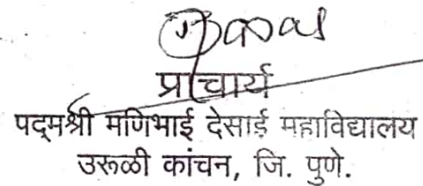 प्राचार्य
पद्मश्री मणिभाई देसाई महाविद्यालय
उरूळी कांचन, जि. पुणे.